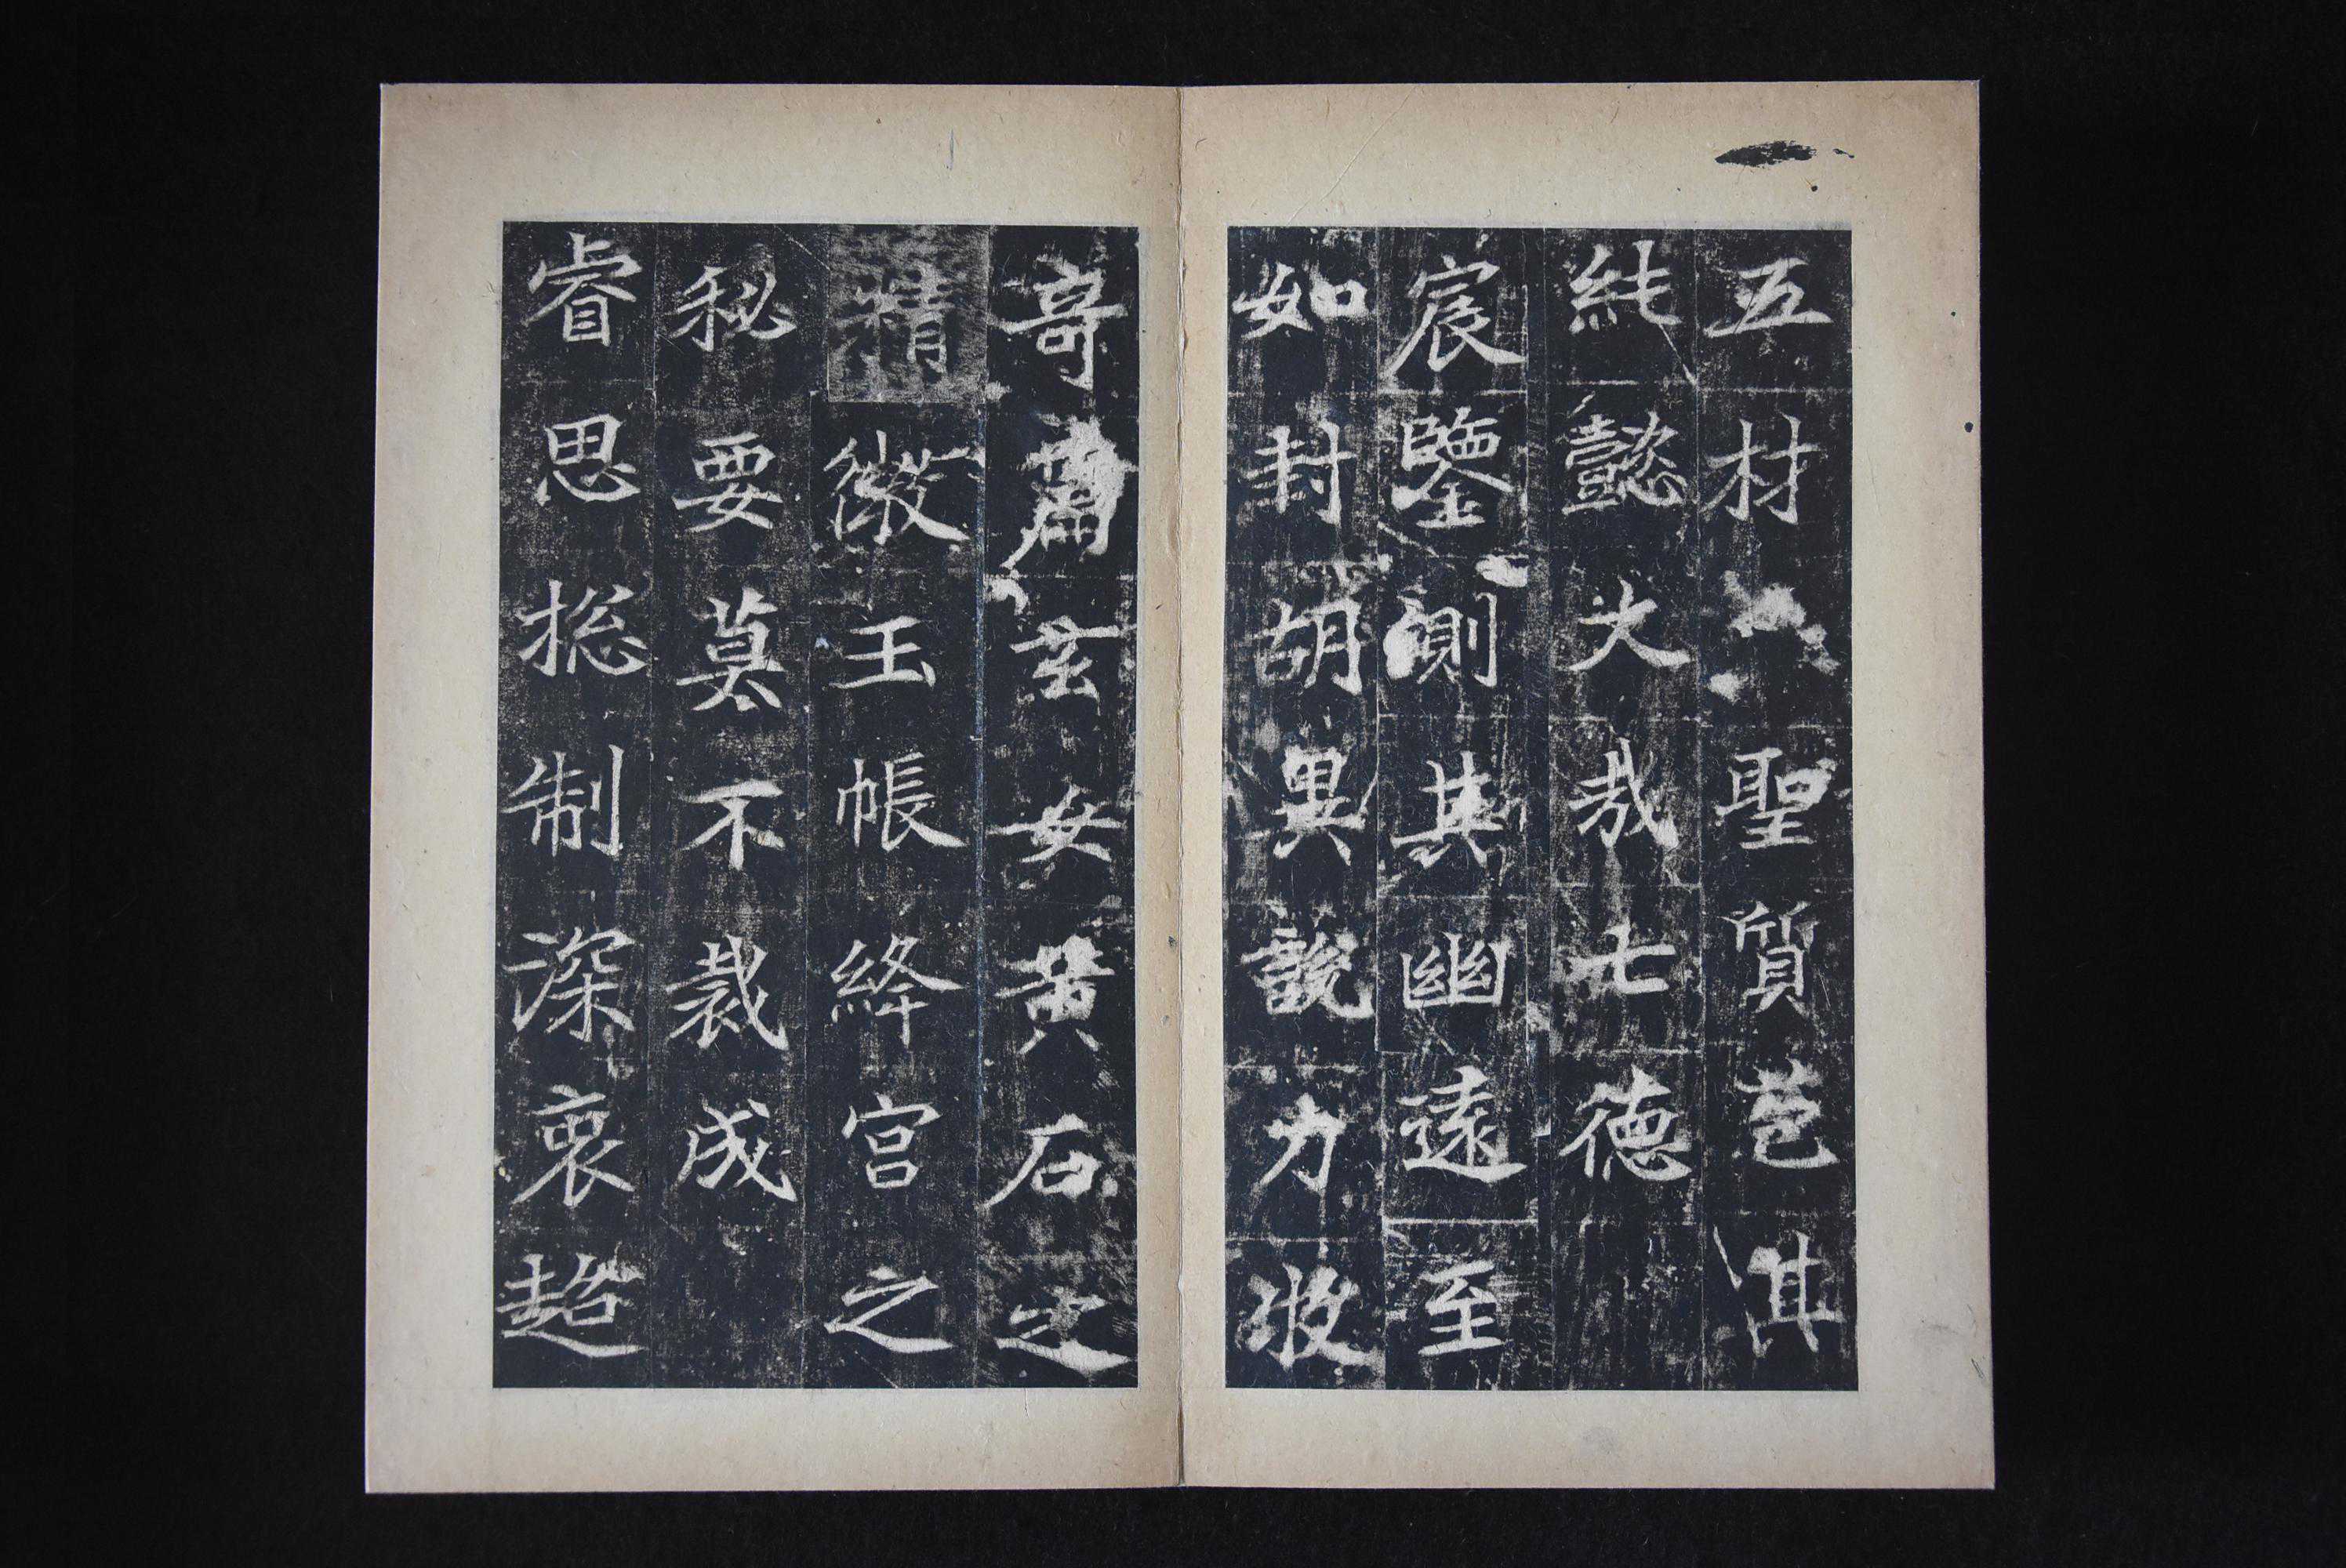 五材聖質苞其
純懿大哉七德
宸鑒測其幽遠至
如封胡異說力牧
奇篇玄女黃石之
精微玉帳絳宮之
秘要莫不裁成
睿思捴制深衷超